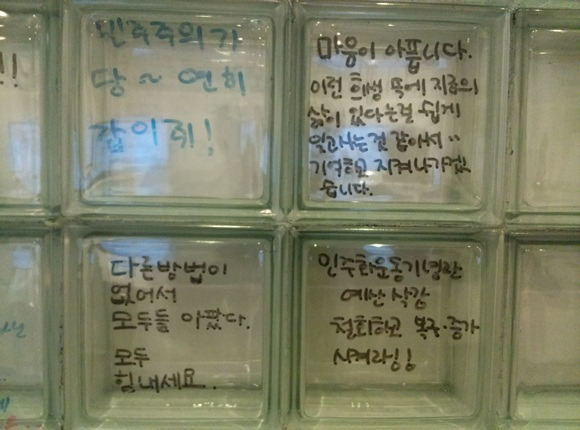 민주주의가
당~연히
갑이쥐!
마음이 아픕니다.
이런 희생 덕에 지금의
삶이 있다는걸 쉽게
잊고사는것 같아서..
기억하고 지켜나가겠
습니다.
다른방법이
없어서
모두들 아팠다.
모두
힘내세요.
민주화운동기념관
예산 삭감
철회하고 복구·증가
시켜라!!
!!